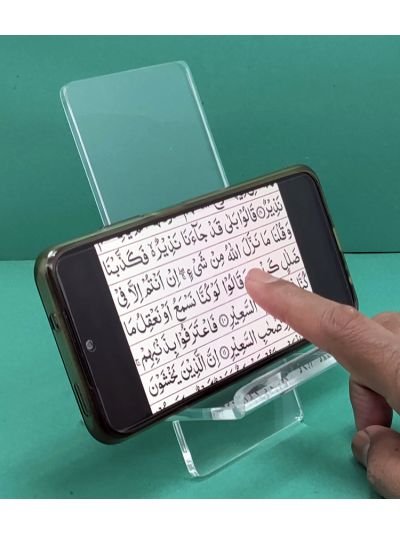 نَذِيْرٌ ۝ قَالُوْا بَلٰى قَدْ جَآءَنَا نَذِيْرٌ فَكَذَّبْنَا
وَقُلْنَا مَا نَزَّلَ اللّٰهُ مِنْ شَىْءٍ ۖ اِنْ اَنْتُمْ اِلَّا فِىْ
ضَلٰلٍ قَالُوْا لَوْ كُنَّا نَسْمَعُ اَوْ نَعْقِلُ مَا
السَّعِيْرِ ۝ فَاعْتَرَفُوْا بِذَنْۢبِهِمْ
صْحٰبِ السَّعِيْرِ ۝ اِنَّ الَّذِيْنَ يَخْشَوْنَ